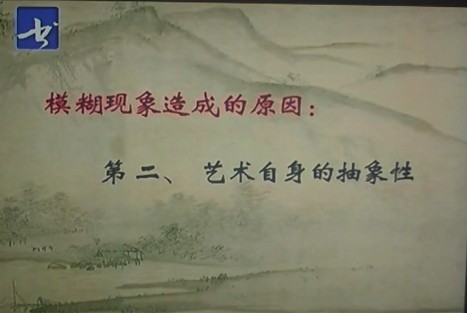 书
模糊现象造成的原因：
第二、艺术自身的抽象性